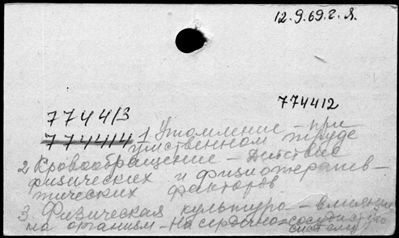 12.9.69.г. Я.
774412
774413
774414 1 Утомление – при
умственном труде
2 Кровообращение – Действие
физических и физиотерапев-
тических факторов
3. Физическая культура – влияние
на организм – На сердечно-сосудистую
систему